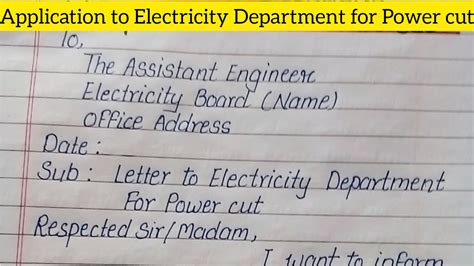 Application to Electricity Department for Power cut
To,
The Assistant Engineer
Electricity Board (Name)
Office Address
Date :
Sub : Letter to Electricity Department
For Power cut
Respected Sir/Madam,
I want to inform